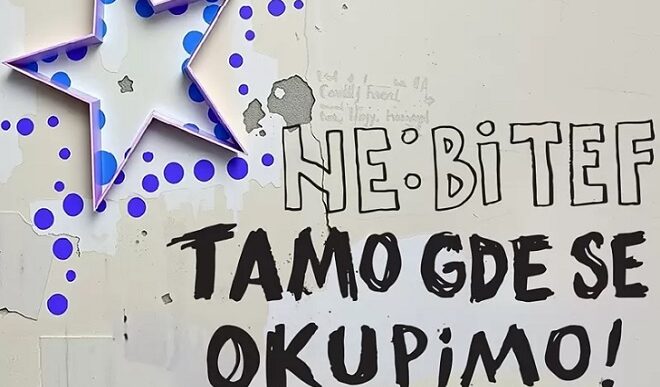 NE:BiTEF
TAMO GDE SE
OKUPiMO!